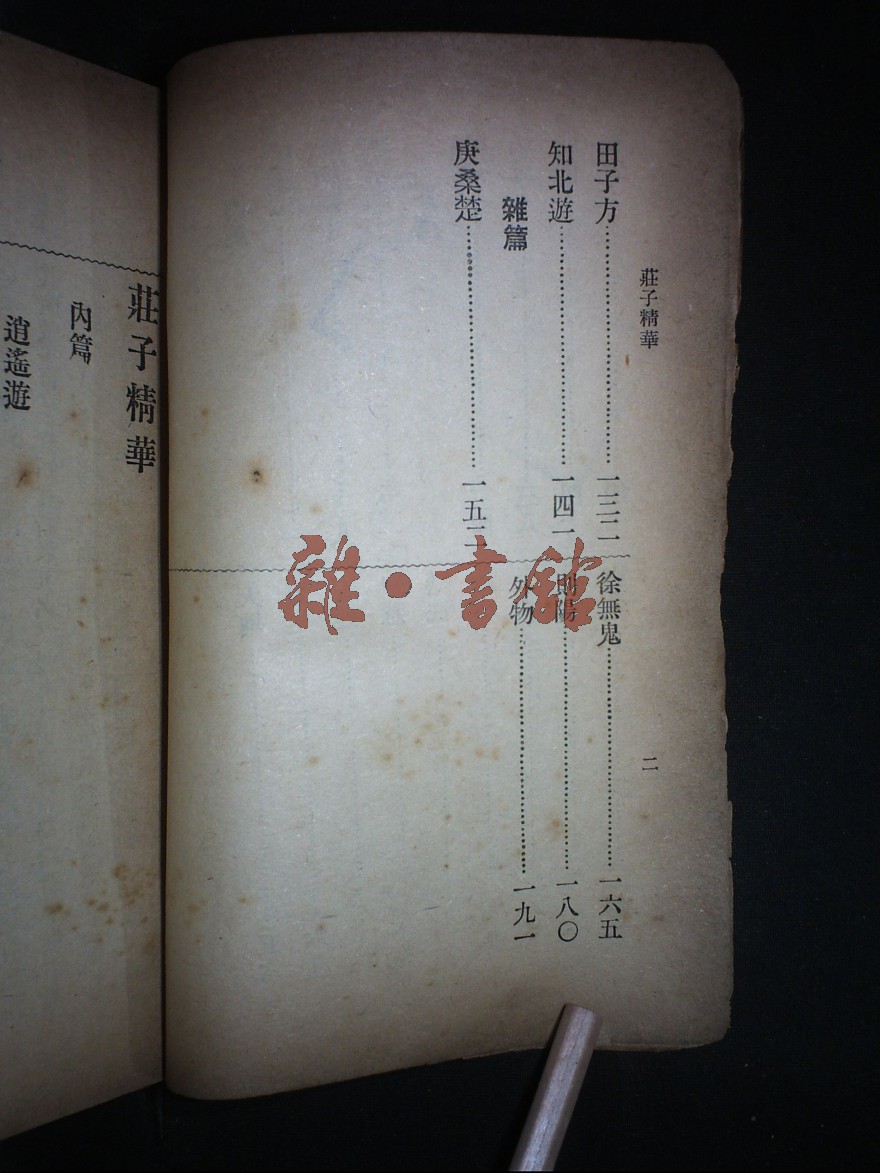 莊子精華
二
田子方……一三二
知北遊……一四一
雜篇
庚桑楚……一五二
徐無鬼……一六五
則陽……一八〇
外物……一九一
莊子精華
內篇
逍遙遊
雜·書館